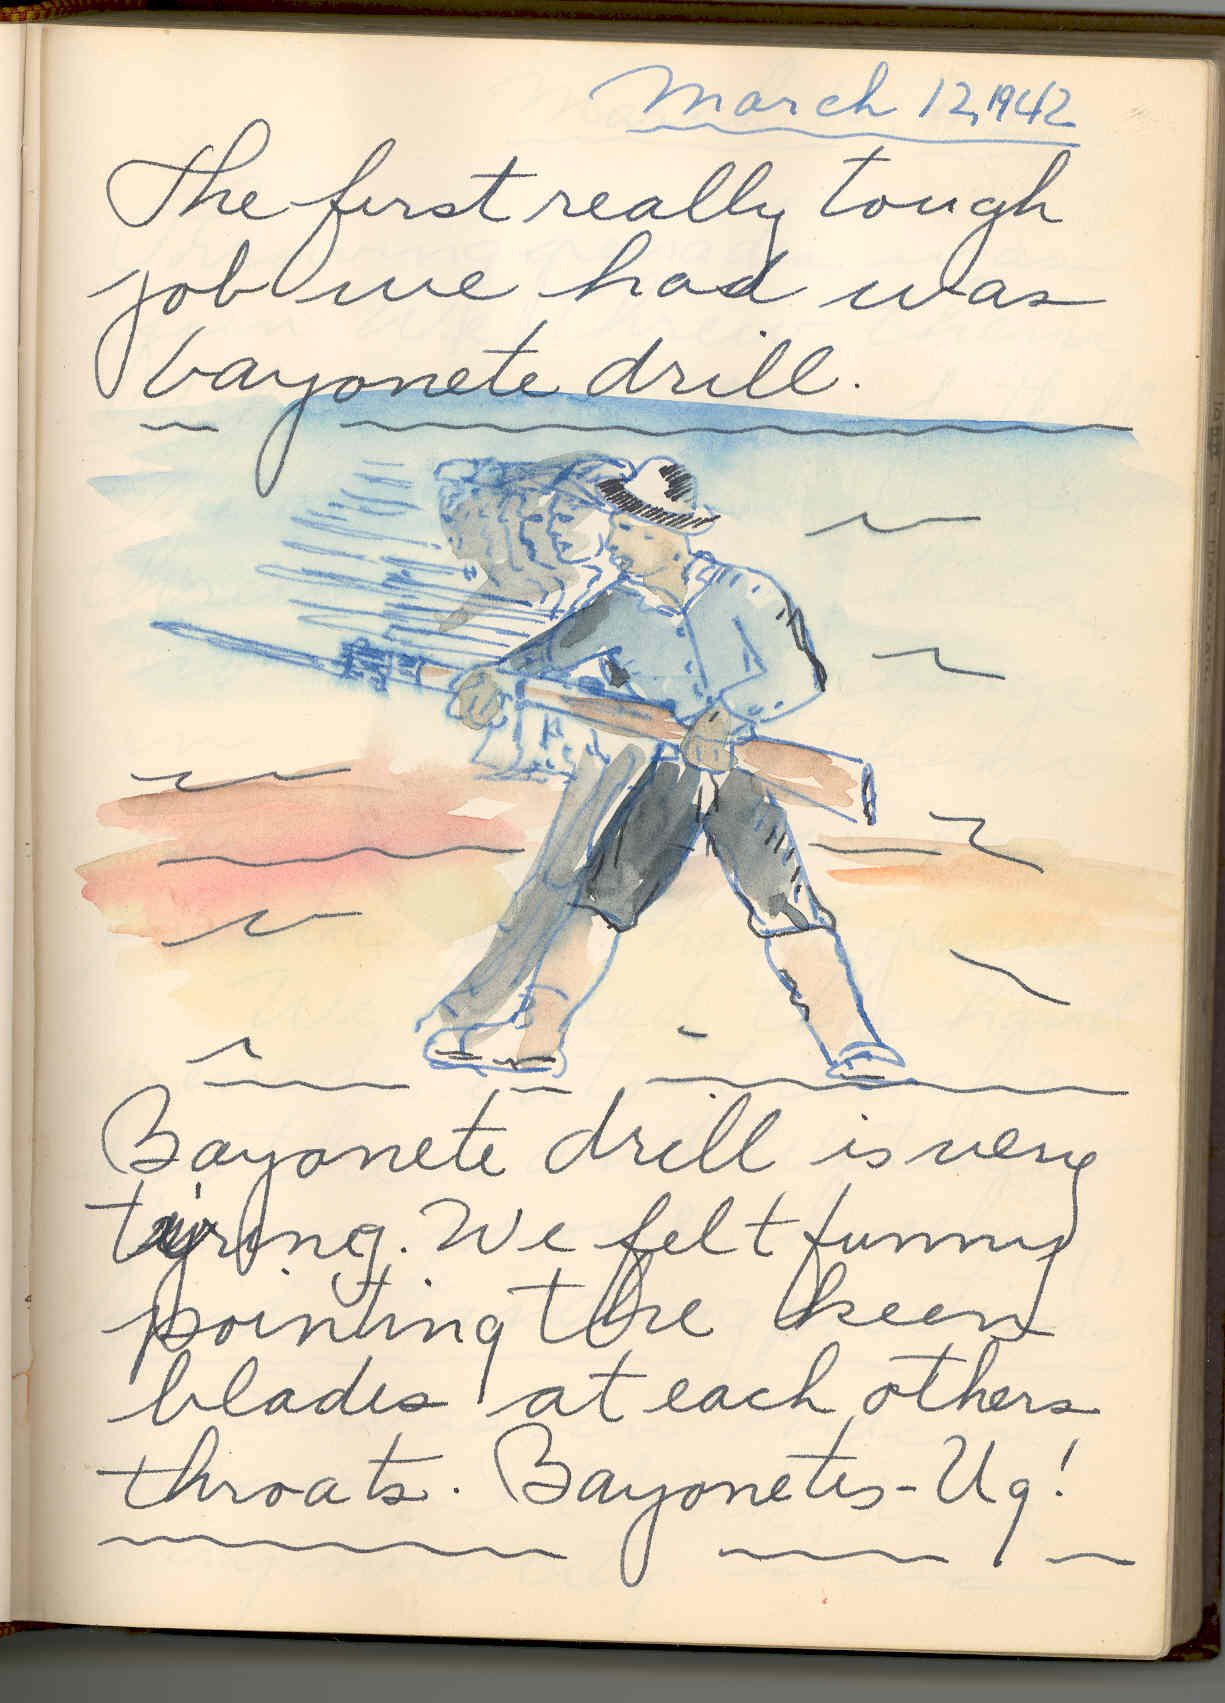 March 12, 1942
The first really tough
job we had was
bayonete drill.
Bayonete drill is very
tyring. We felt funny
pointing the keen
blades at each others
throats. Bayonetes - Ug!